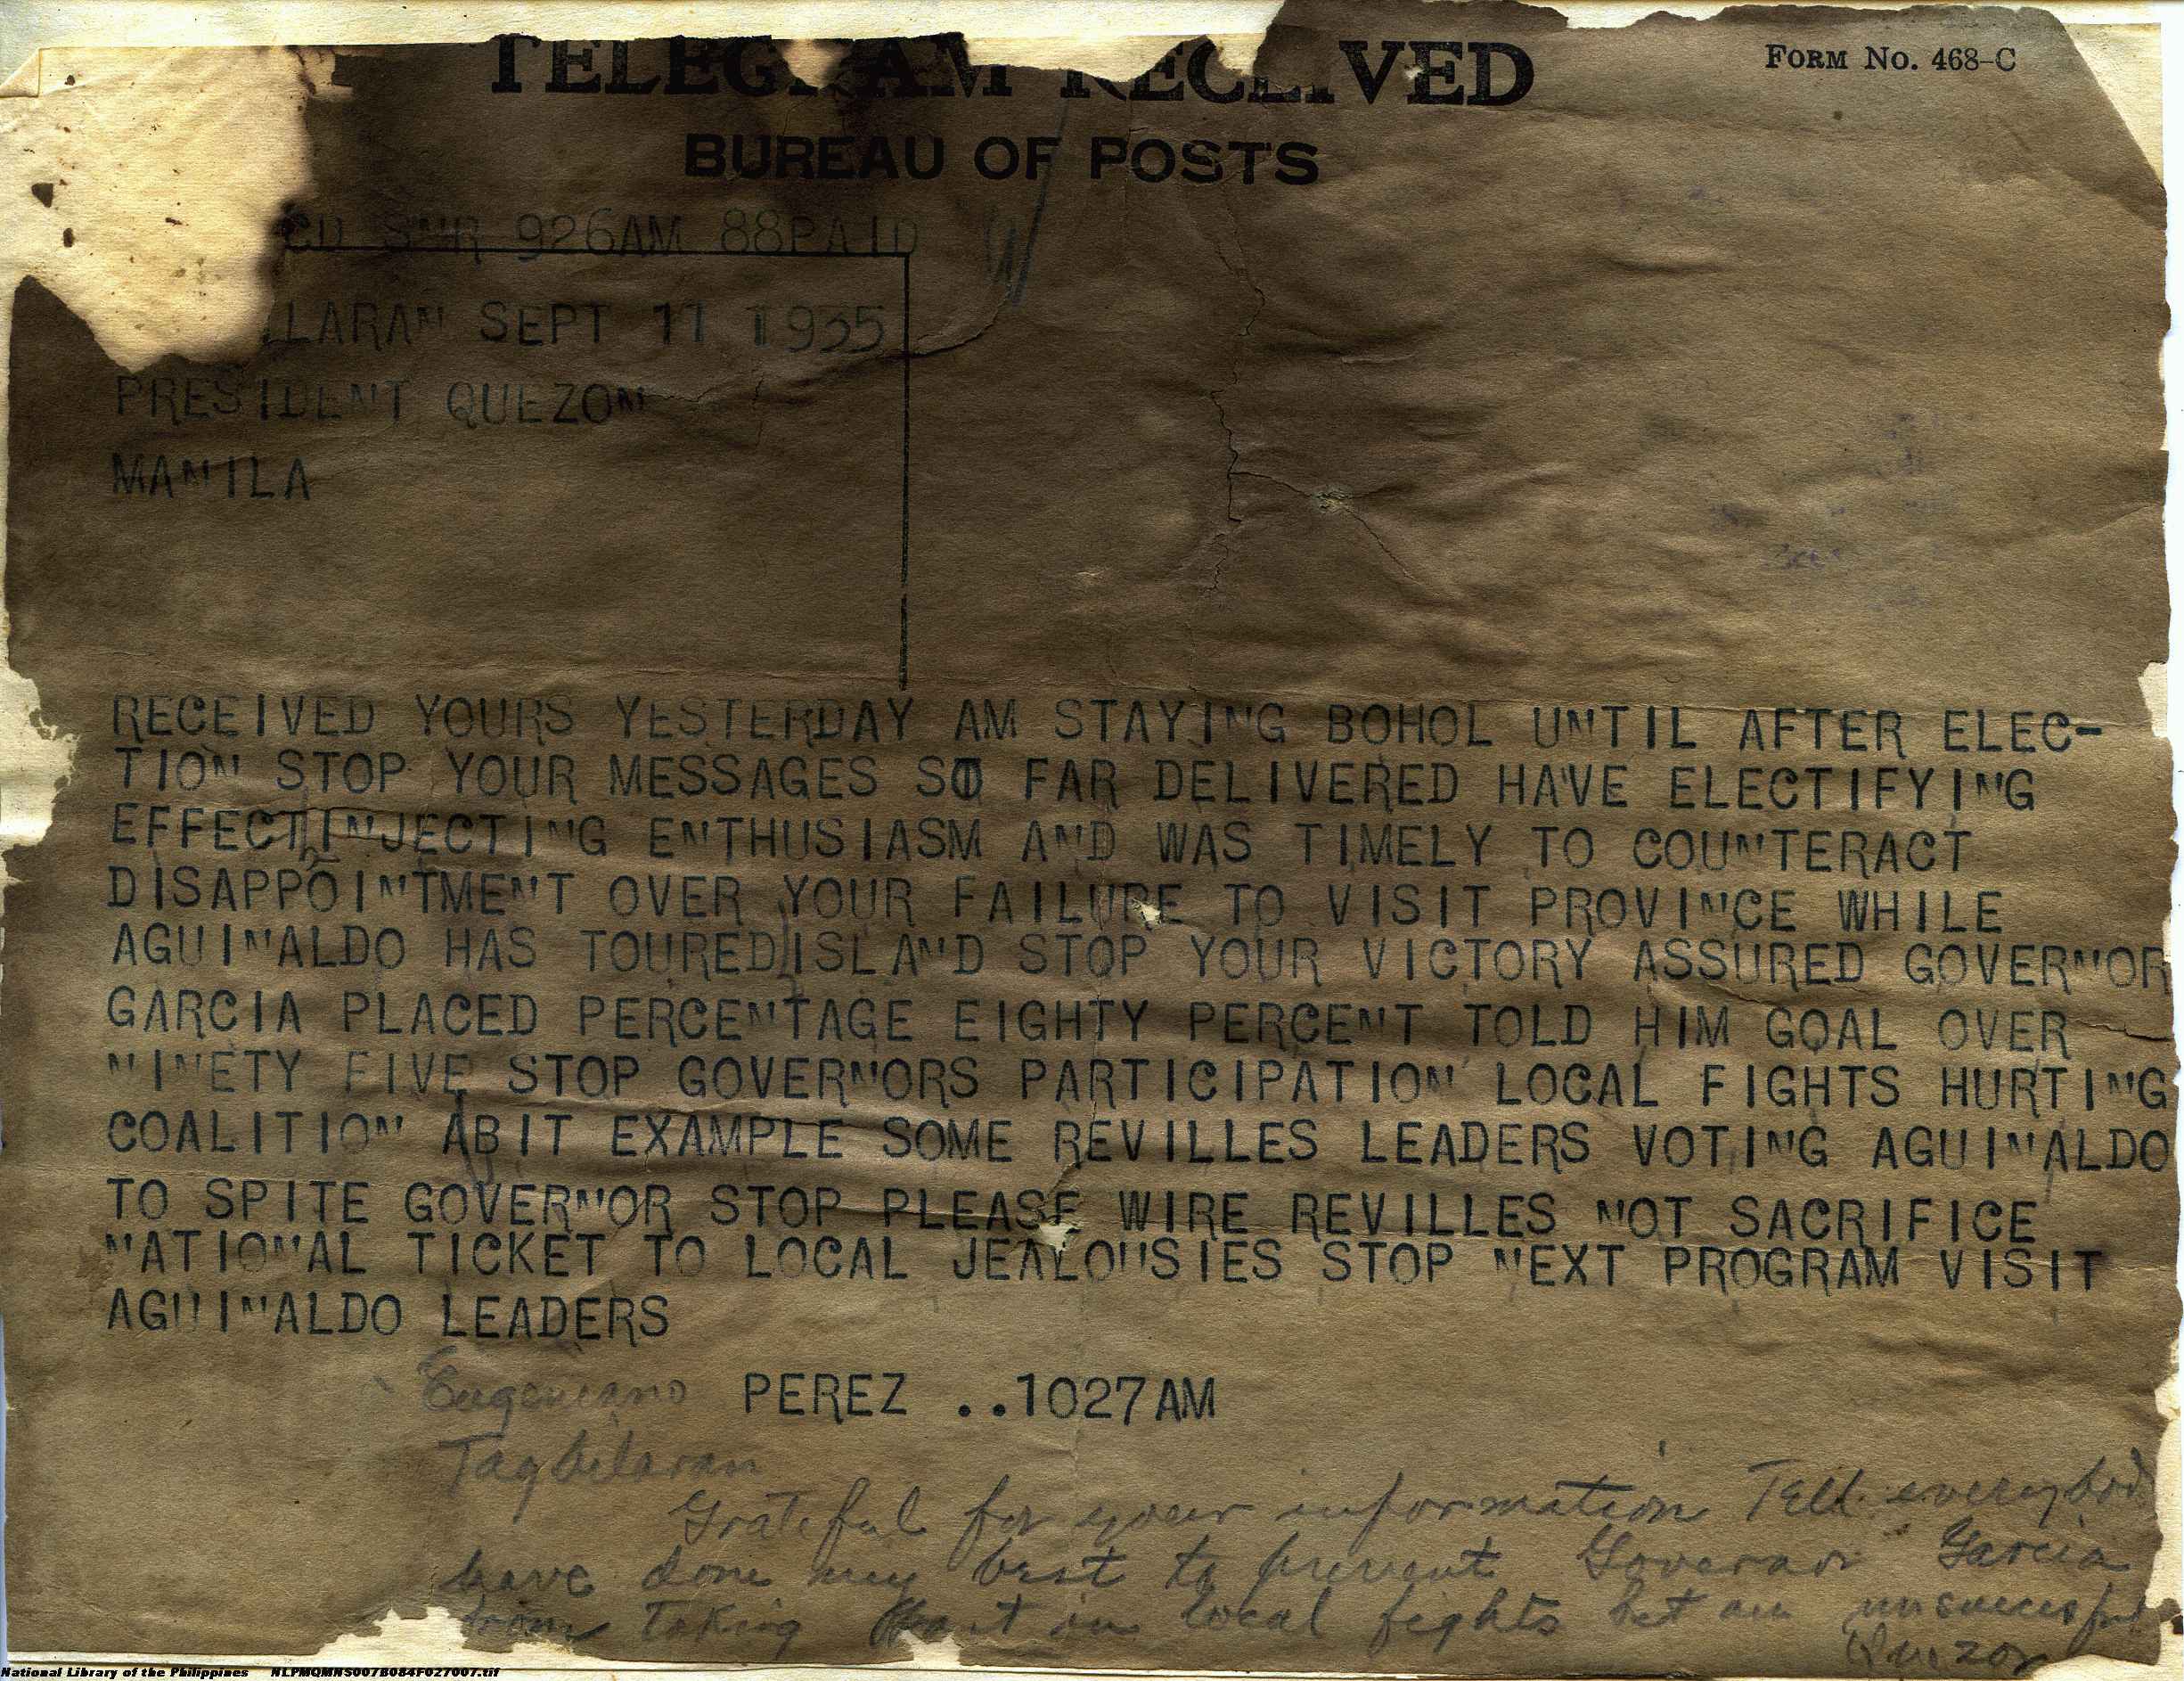 TELEGRAM RECEIVED
FORM NO. 468-C
BUREAU OF POSTS
CD SNR 926AM 88PAID
LARAN SEPT 11 1935
PRESIDENT QUEZON
MANILA
RECEIVED YOURS YESTERDAY AM STAYING BOHOL UNTIL AFTER ELEC-
TION STOP YOUR MESSAGES SO FAR DELIVERED HAVE ELECTIFYING
EFFECT INJECTING ENTHUSIASM AND WAS TIMELY TO COUNTERACT
DISAPPOINTMENT OVER YOUR FAILURE TO VISIT PROVINCE WHILE
AGUINALDO HAS TOURED ISLAND STOP YOUR VICTORY ASSURED GOVERNOR
GARCIA PLACED PERCENTAGE EIGHTY PERCENT TOLD HIM GOAL OVER
NINETY FIVE STOP GOVERNORS PARTICIPATION LOCAL FIGHTS HURTING
COALITION ABIT EXAMPLE SOME REVILLES LEADERS VOTING AGUINALDO
TO SPITE GOVERNOR STOP PLEASE WIRE REVILLES NOT SACRIFICE
NATIONAL TICKET TO LOCAL JEALOUSIES STOP NEXT PROGRAM VISIT
AGUINALDO LEADERS
Eugeniano PEREZ ..1027AM
Tagbilaran
Grateful for your information Tell everybod
have done my best to prevent Governor Garcia
from taking part in local fights but am unsuccessful
Quezon
National Library of the Philippines NLPMQMNS007B084F027007.tif